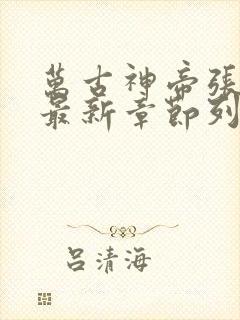 萬古神帝張
最新章節列
呂清海